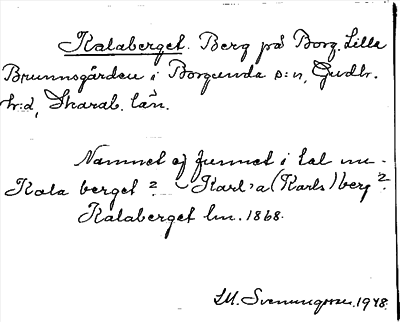 Kalaberget. Berg på Borg. Lilla
Brunnsgården i Borgunda s:n, Gudh.
h:d, Skarab. län.
Namnet ej funnet i tal nu.
Kala berget? ~ Karl,a (Karls) berg?
Kalaberget lm. 1868.
M. Svenungsson. 1948.